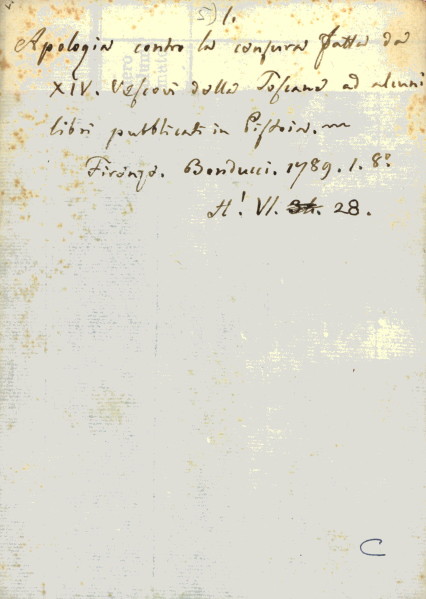 5) 1.
Apologia contro la censura fatta da
XIV. Vescovi della Toscana ad alcuni
libri pubblicati in Pistoia.
Firenze. Bonducci. 1789. 1. 8º
H! VI. 34. 28.
C